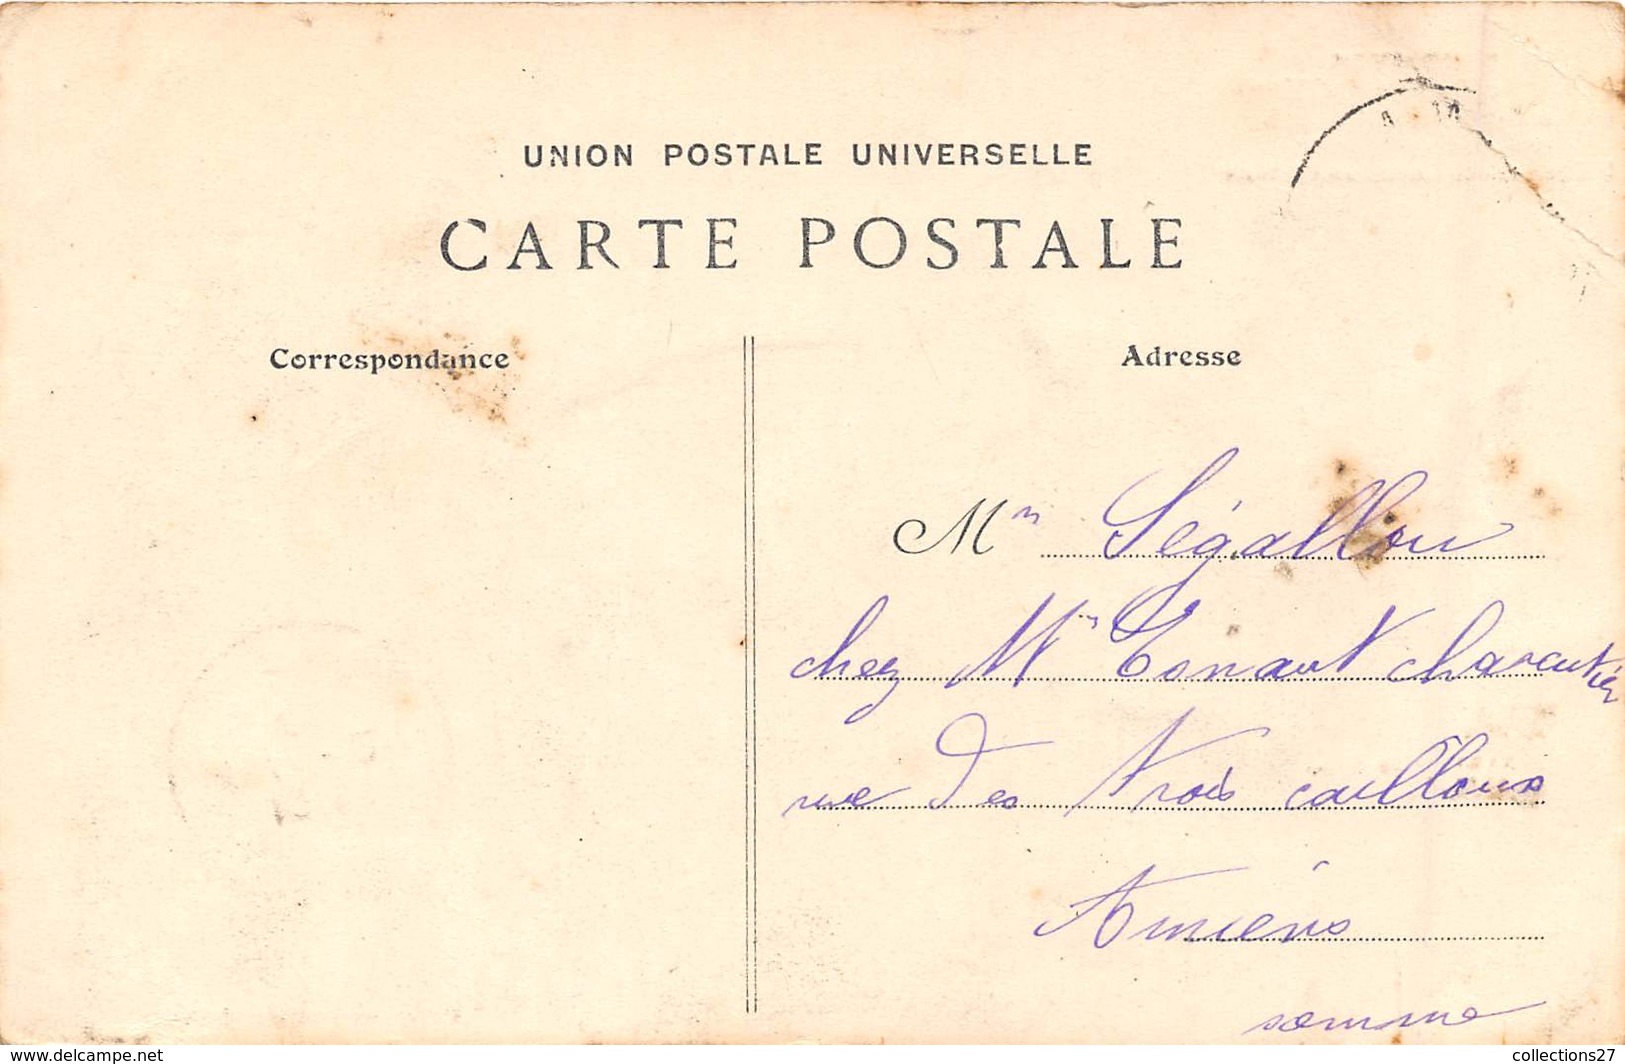 UNION POSTALE UNIVERSELLE
CARTE POSTALE
Correspondance
Adresse
Mr Ségallou
chez Mr Tonaut charcutier
rue des trois cailloux
Amiens
somme
delcampe.net
collections27